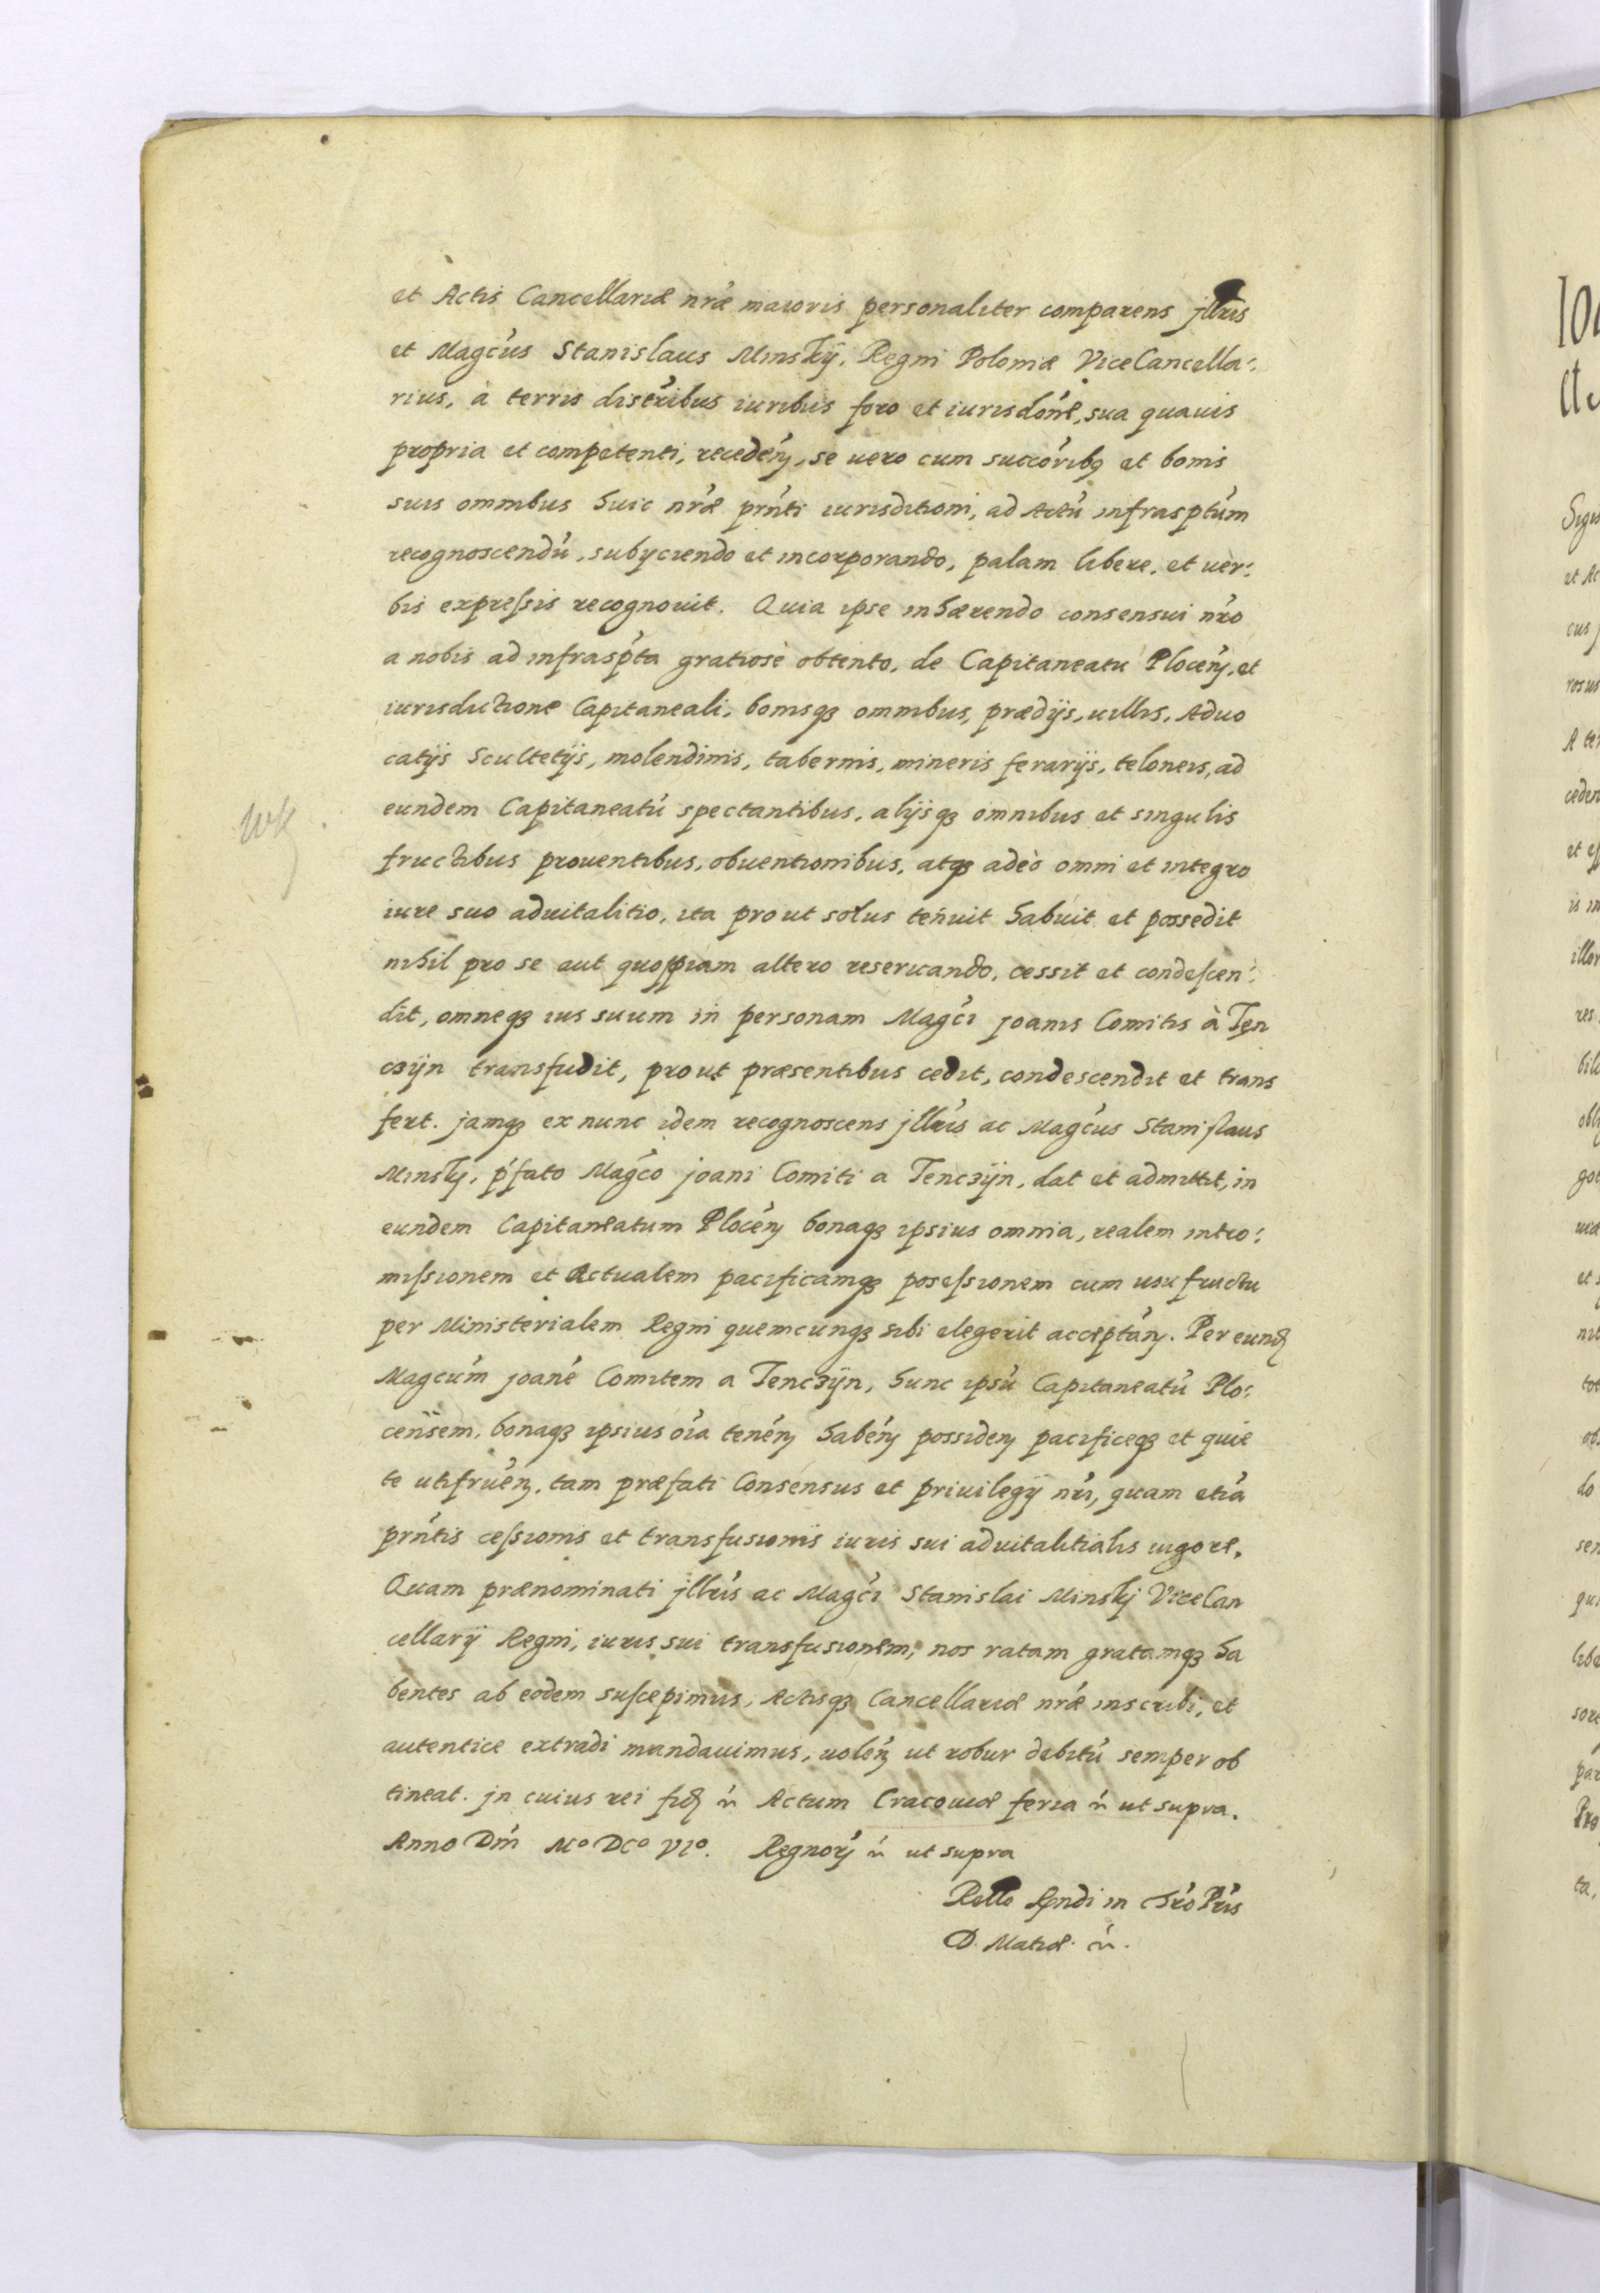 et Actis Cancellariæ nr̃æ maioris personaliter comparens jllr̃is
et Magc̃us Stanislaus Minskÿ. Regni Poloniæ ViceCancella⸗
rius, à terris distr̃ibus iuribus foro et iurisdõne, sua quauis
propria et competenti, receden̄, se uero cum succõribq et bonis
suis omnibus huic nr̃æ prñti iurisditioni, ad Actũ infrasptũm
recognoscendũ, subÿciendo et incorporando, palam libere, et uer⸗
bis expreſsis recognouit. Quia ipse inhærendo consensui nr̃o
a nobis ad infraspta gratiosè obtento, de Capitaneatu Plocen̄, et
iurisdictione Capitaneali, bonisqʒ omnibus, prædÿs, uillis, Aduo
catÿs Scultetÿs, molendinis, tabernis, mineris ferarÿs, teloneis, ad
eundem Capitaneatũ spectantibus, alÿsqʒ omnibus et singulis
fructibus prouentibus, obuentionibus, atqʒ adeò omni et integro
iure suo aduitalitio, ita prout solus tenuit habuit et possedit
nihil pro se aut quoſpiam altero reseruando, cessit et condeſcen⸗
dit, omneqʒ ius suum in personam Magc̃i joanis Comitis à Ten
cʒÿn transfudit, prout præsentibus cedit, condescendit et trans
fert. jamqʒ ex nunc idem recognoscens jllr̃is ac Magc̃us Staniſlaus
Minskj, p̃fato Magc̃o joani Comiti a Tencʒÿn, dat et admittit, in
eundem Capitaneatum Plocen̄ bonaqʒ ipsius omnia, realem intro⸗
miſsionem et Actualem pacificamqʒ poseſsionem cum usufructu
per Ministerialem Regni quemcunqʒ sibi elegerit acceptan̄. Per eund̄
Magcũm joanẽ Comitem a Tencʒÿn, hunc ipsũ Capitaneatũ Plo⸗
censem, bonaqʒ ipsius õia tenen̄ haben̄ possiden̄ pacificeqʒ et quie
te utifruen̄, tam præfati Consensus et priuilegÿ nr̃i, quam etiã
prñtis ceſsionis et transfusionis iuris sui aduitalitialis uigore.
Quam prænominati jllr̃is ac Magc̃i Stanislai Minskj ViceCan
cellarÿ Regni, iuris sui transfusionem, nos ratam gratamqʒ ha
bentes ab eodem suſcepimus, Actisqʒ Cancellariæ nr̃æ inscribi, et
autentice extradi mandauimus, uolen̄ ut robur debitũ semper ob
tineat. jn cuius rei fid̄ ñ Actum Cracouiæ feria ñ ut supra.
Anno Dm̃ Mº DCº VIº. Regnor̃ ñ ut supra
Rello Rndi in Chr̃o Pr̃is
D. Matiæ. ñ.